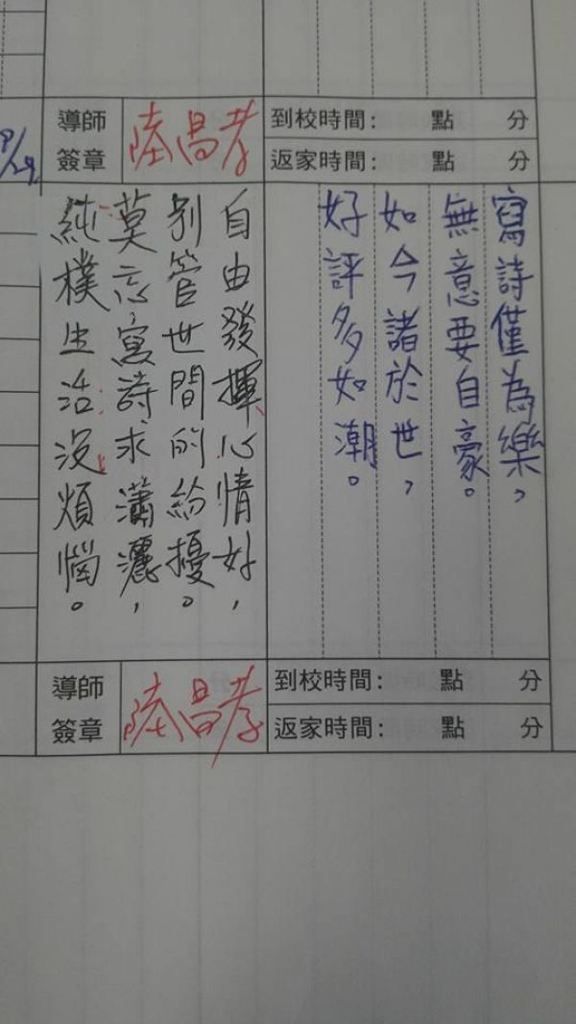 導師
簽章
陸昌孝
到校時間： 點 分
返家時間： 點 分
寫詩僅為樂，
無意要自豪。
如今諸於世，
好評多如潮。
自由發揮心情好，
別管世間的紛擾。
莫忘寫詩求瀟灑，
純樸生活沒煩惱。
導師
簽章
陸昌孝
到校時間： 點 分
返家時間： 點 分